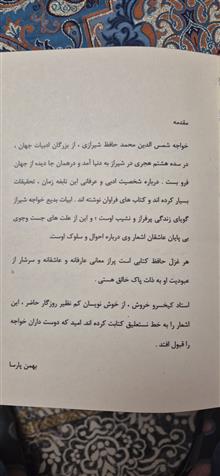 مقدمه
خواجه شمس الدین محمد حافظ شیرازی ، از بزرگان ادبیات جهان ،
در سده هشتم هجری در شیراز به دنیا آمد و درهمان جا دیده از جهان
فرو بست . درباره شخصیت ادبی و عرفانی این نابغه زمان ، تحقیقات
بسیار کرده اند و کتاب های فراوان نوشته اند . ابیات بدیع خواجه شیراز
گویای زندگی پرفراز و نشیب اوست ؛ و این از علت های جست وجوی
بی پایان عاشقان اشعار وی درباره احوال و سلوک اوست.
هر غزل حافظ کتابی است پراز معانی عارفانه و عاشقانه و سرشار از
عبودیت او به ذات پاک خالق هستی .
استاد کیخسرو خروش ، از خوش نویسان کم نظیر روزگار حاضر ، این
اشعار را به خط نستعلیق کتابت کرده اند. امید که دوست داران خواجه
را قبول افتد .
بهمن پارسا